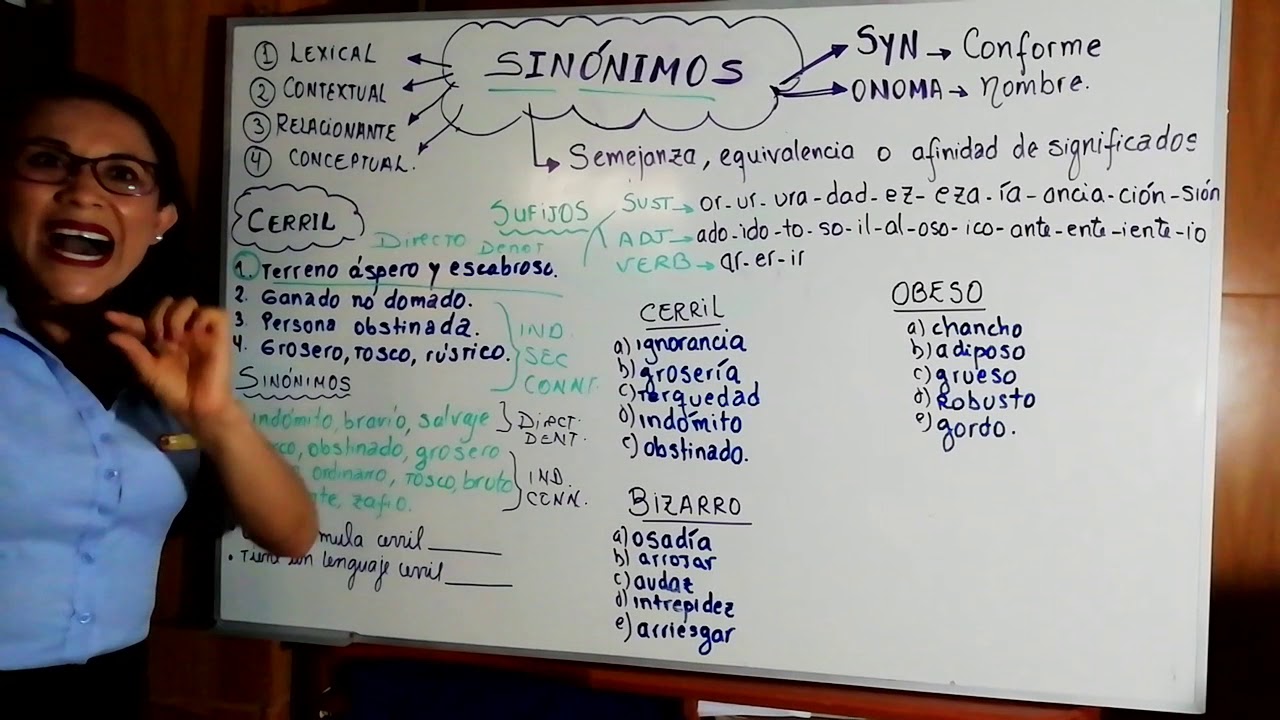 SINÓNIMOS
① LEXICAL
② CONTEXTUAL
③ RELACIONANTE
④ CONCEPTUAL.
SYN → Conforme
ONOMA → nombre.
Semejanza, equivalencia o afinidad de significados
SUFIJOS
SUST → or-ur-ura-dad-ez-eza-ía-ancia-ción-sión
ADJ → ado-ido-to-so-il-al-oso-ico-ante-ente-iente-io
VERB → ar-er-ir
CERRIL
Directo Denot
1. Terreno áspero y escabroso.
2. Ganado no domado.
3. Persona obstinada.
4. Grosero, tosco, rústico.
IND.
SEC
CONNT.
SINÓNIMOS
indómito, bravío, salvaje
DIRECT.
DENT.
obstinado, grosero
ordinario, tosco, bruto
zafio.
IND.
CONN.
mula cerril ______
• Tiene un lenguaje cerril ______
CERRIL
a) ignorancia
b) grosería
c) Terquedad
d) indómito
e) obstinado.
BIZARRO
a) osadía
b) arrojar
c) audaz
d) intrepidez
e) arriesgar
OBESO
a) chancho
b) adiposo
c) grueso
d) Robusto
e) gordo.